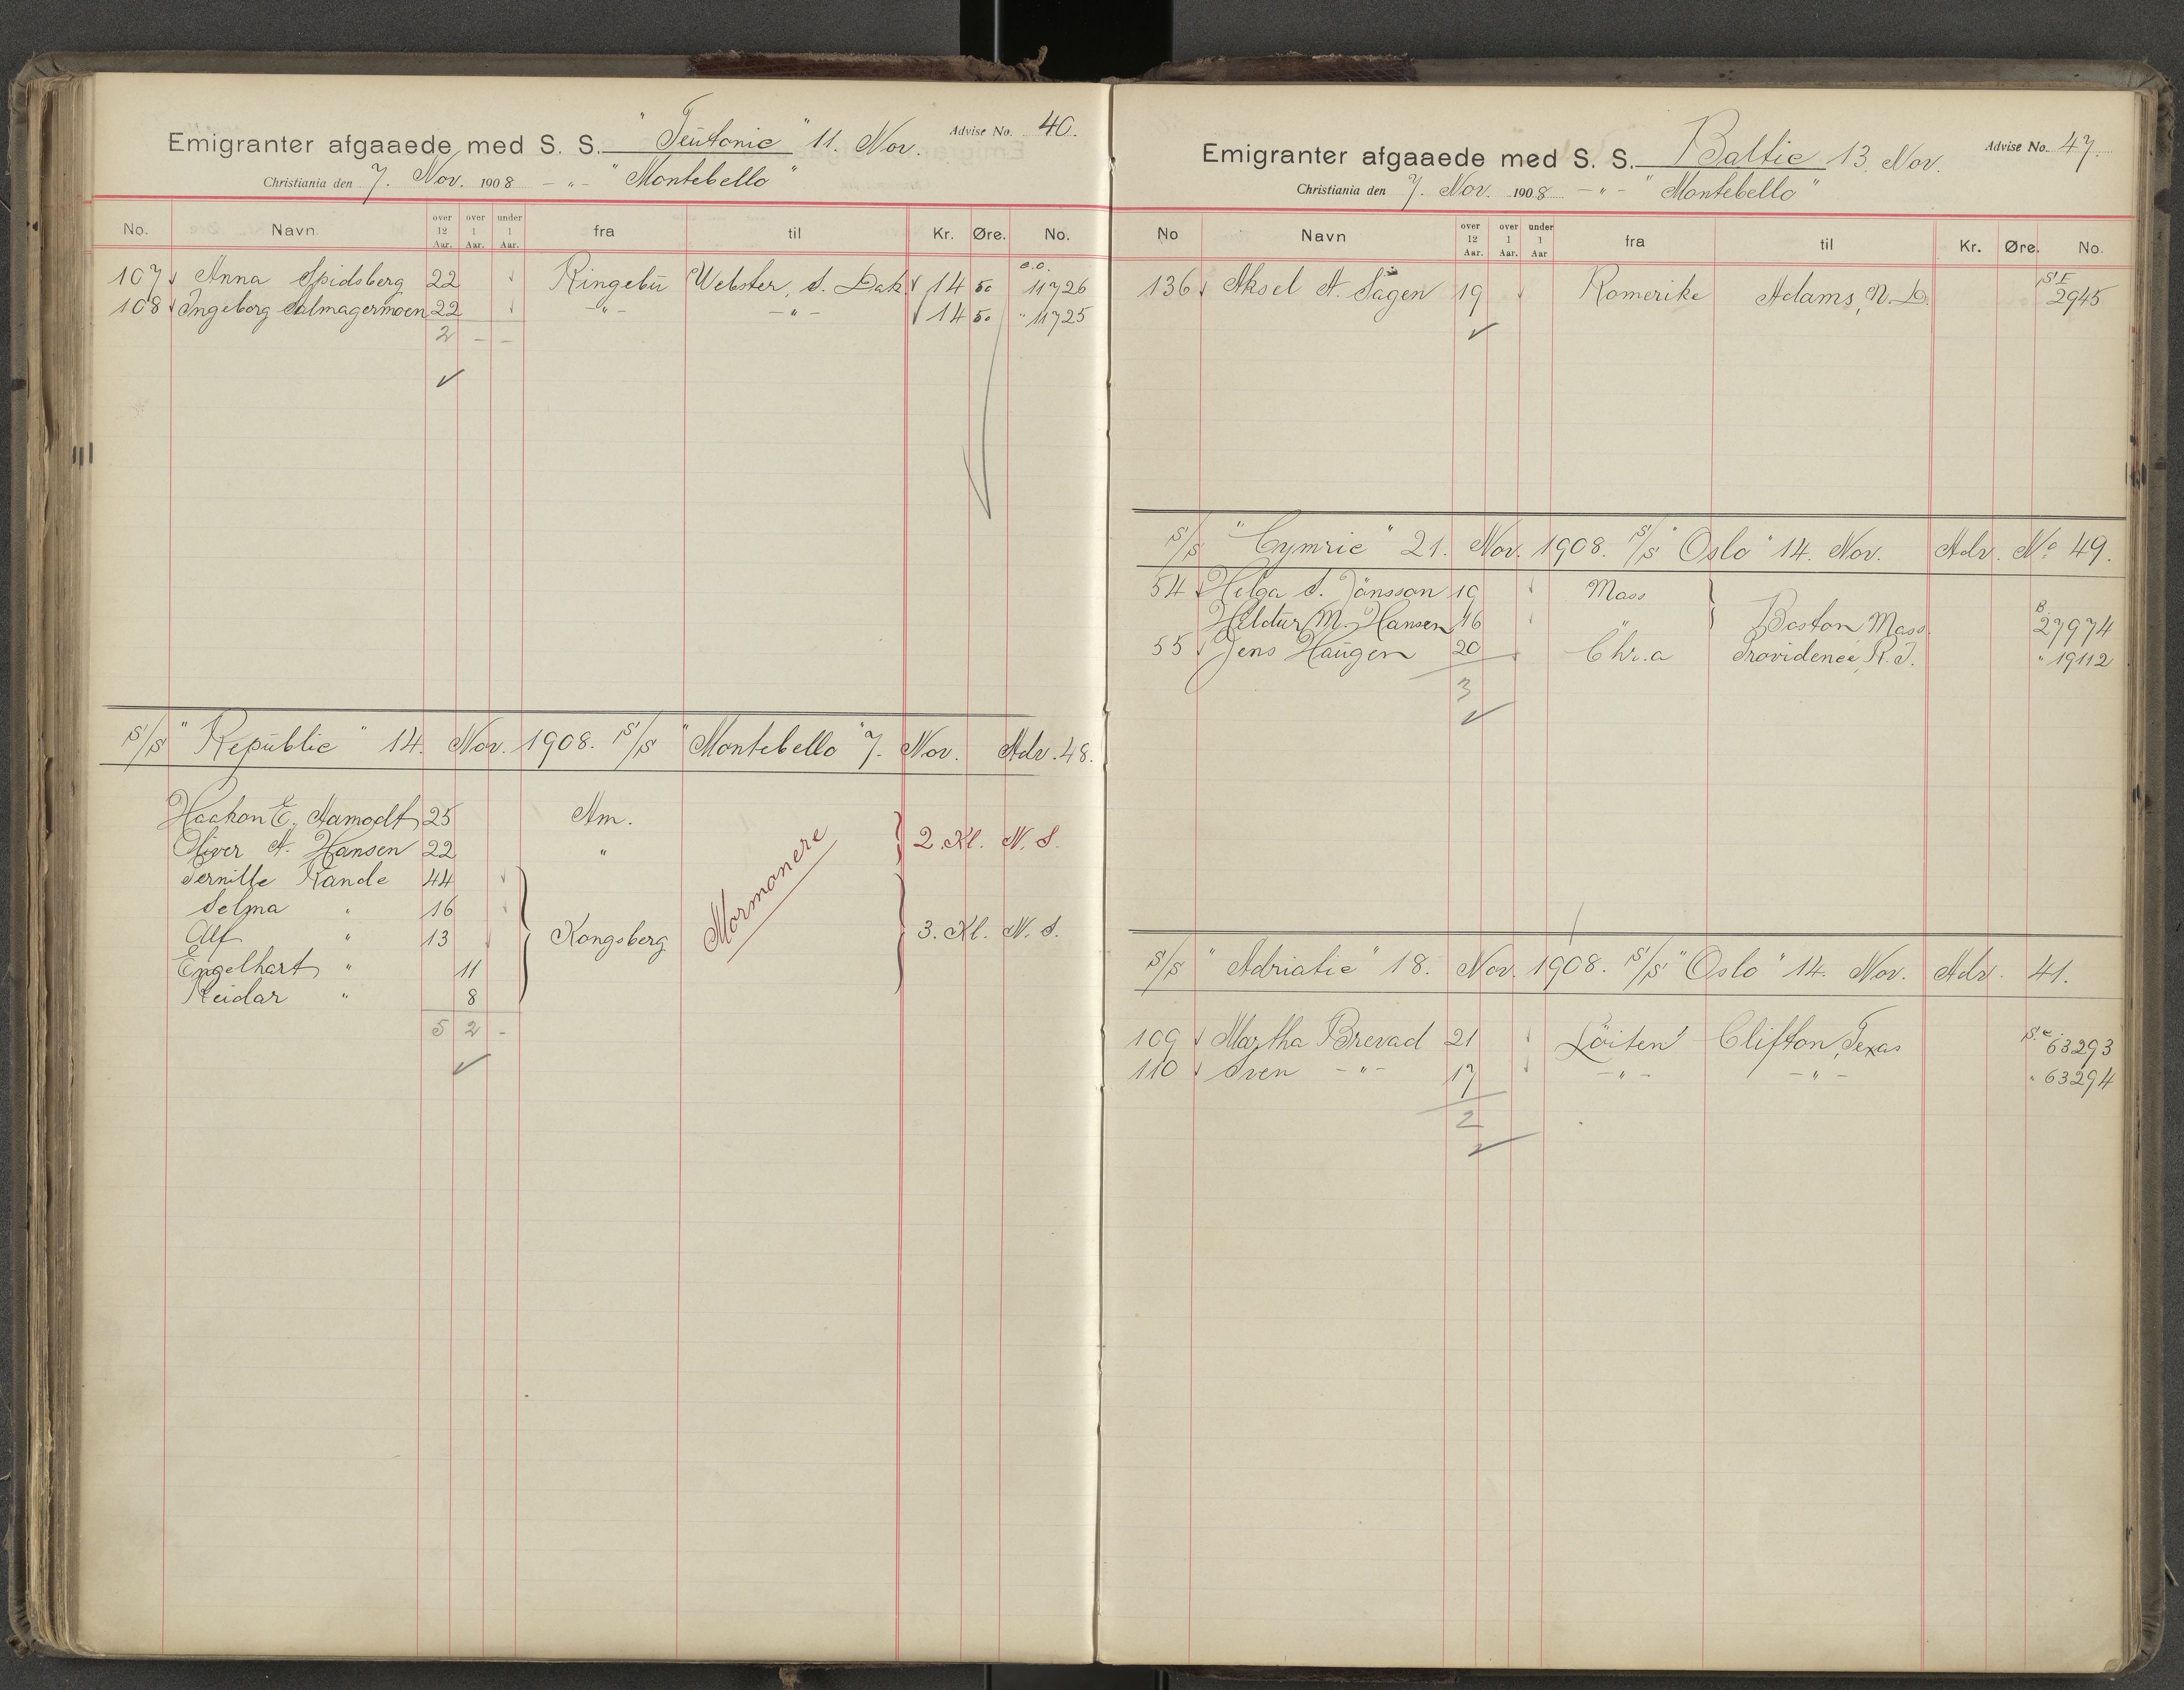 Emigranter afgaaede med S. S. "Teutonic" 11. Nov. Advise No. 40.
Christiania den 7. Nov. 1908 - " - "Montebello"
No. Navn over 12 Aar. over 1 Aar. under 1 Aar. fra til Kr. Øre. No.
107 Anna Spidsberg 22 Ringebu Webster, S. Dak 14 50 c.c. 11726
108 Ingeborg Salmagermoen 22 - " - - " - 14 50 " 11725
2 - -
S/S "Republic" 14. Nov. 1908. S/S "Montebello" 7. Nov. Adv. 48.
Haakon E. Aamodt 25 Am.
Oliver A. Hansen 22 " 2. Kl. N. S.
Pernille Rande 44 Mormonere
Selma " 16
Alf " 13 Kongsberg 3. Kl. N. S.
Engelhart " 11
Reidar " 8
5 2 -
Emigranter afgaaede med S. S. Baltic 13. Nov. Advise No. 47.
Christiania den 7. Nov. 1908 - " - "Montebello"
No Navn over 12 Aar. over 1 Aar. under 1 Aar fra til Kr. Øre. No.
136 Aksel A. Sagen 19 Romerike Adams, N. D. 2945
S/S "Cymric" 21. Nov. 1908. S/S "Oslo" 14. Nov. Adv. No 49.
54 Helga S. Jönsson 19 Moss
Hildur M. Hansen 16 " Boston Mass B. 27974
55 Jens Haugen 20 Chr.a Providence, R. I. " 19112
3
S/S "Adriatic" 18. Nov. 1908. S/S "Oslo" 14. Nov. Adv. 41.
109 Martha Brevad 21 Löiten Clifton, Texas 63293
110 Sven - " - 17 - " - - " - " 63294
2